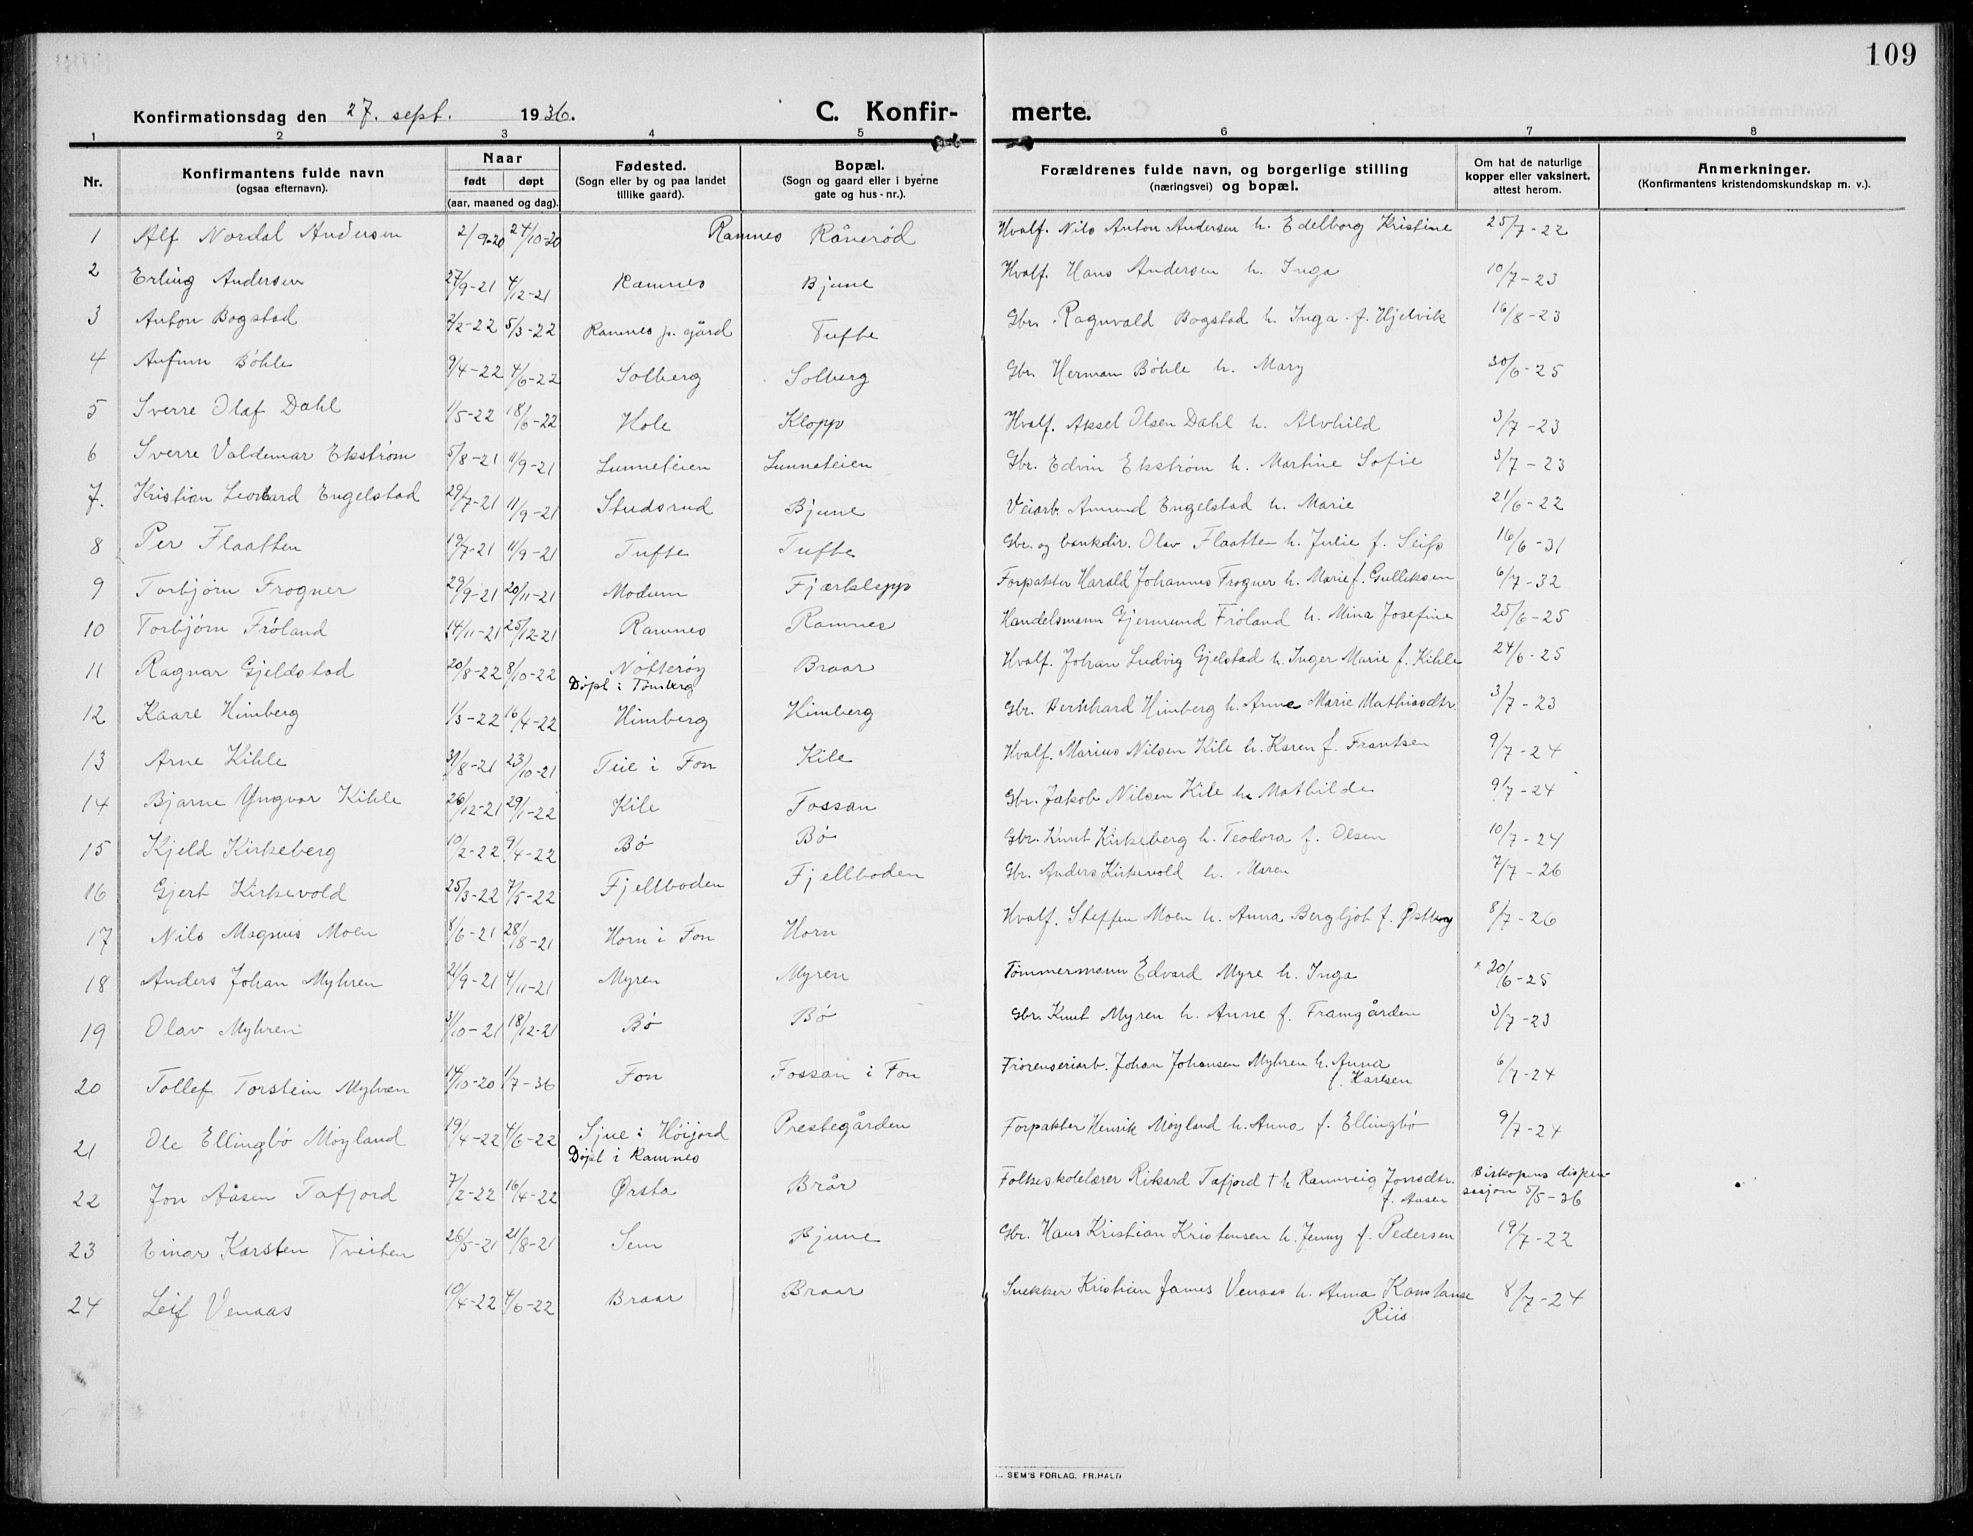 109
Konfirmationsdag den 27. sept. 1936. C. Konfir- merte.
1 2 3 4 5 6 7 8
Nr. Konfirmantens fulde navn (ogsaa efternavn). Naar født døpt (aar, maaned og dag). Fødested. (Sogn eller by og paa landet tillike gaard). Bopæl. (Sogn og gaard eller i byerne gate og hus-nr.). Forældrenes fulde navn, og borgerlige stilling (næringsvei) og bopæl. Om hat de naturlige kopper eller vaksinert, attest herom. Anmerkninger. (Konfirmantens kristendomskundskap m. v.).
1 Alf Nordal Andersen 2/9-20 24/10-20 Ramnes Rånerød Hvalf. Nils Anton Andersen h. Edelborg Kristine 25/7-22
2 Erling Andersen 27/9-21 4/12-21 Ramnes Bjune Hvalf. Hans Andersen h. Inga 10/7-23
3 Anton Bogstad 2/2-22 5/3-22 Ramnes p. gård Tufte Gbr. Ragnvald Bogstad h. Inga f. Hjelvik 16/8-23
4 Anfinn Bøhle 9/4-22 4/6-22 Solberg Solberg Gbr. Herman Bøhle h. Mary 30/6-25
5 Sverre Olaf Dahl 1/5-22 18/6-22 Hole Klopp Hvalf. Aksel Olsen Dahl h. Alvhild 3/7-23
6 Sverre Valdemar Ekstrøm 5/8-21 11/9-21 Lunneteien Lunneteien Gbr. Edvin Ekstrøm h. Martine Sofie 3/7-23
7. Kristian Leonard Engelstad 29/7-21 11/9-21 Studsrud Bjune Veiarb. Amund Engelstad h. Marie 21/6-22
8 Per Flaatten 19/7-21 11/9-21 Tufte Tufte Gbr. og bankdir. Olav Flaatten h. Julie f. 16/6-31
9 Torbjørn Frogner 29/9-21 20/11-21 Modum Fjærklepp Forpakter Harald Johannes Frogner h. Marie f. Gulliksen 6/7-32
10 Torbjørn Frøland 14/11-21 25/12-21 Ramnes Ramnes Handelsmann Gjermund Frøland h. Mina Josefine 25/6-25
11 Ragnar Gjeldstad 20/8-22 8/10-22 Nøtterøy Braar Hvalf. Johan Ludvig Gjelstad h. Inger Marie f. Kihle 24/6-25
Døpt i Tønsberg
12 Kaare Himberg 1/3-22 16/4-22 Himberg Himberg Gbr. Bernhard Himberg h. Anne Marie Mathiasdtr. 3/7-23
13 Arne Kihle 31/8-21 23/10-21 Teie i Fon Kile Hvalf. Marius Nilsen Kile h. Karen f. Frantsen 9/7-24
14 Bjarne Yngvar Kihle 26/12-21 29/1-22 Kile Fossan Gbr. Jakob Nilsen Kile h. Mathilde 9/7-24
15 Kjeld Kirkeberg 10/2-22 9/4-22 Bø Bø Gbr. Knut Kirkeberg h. Teodora f. Olsen 10/7-24
16 Gjert Kirkevold 25/3-22 7/5-22 Fjellboden Fjellboden Gbr. Anders Kirkevold h. Maren 7/7-26
17 Nils Magnus Moen 8/6-21 28/8-21 Horn i Fon Horn Hvalf. Steffen Moen h. Anna Bergljot f. Østby 8/7-26
18 Anders Johan Myhren 21/9-21 4/11-21 Myren Myren Tømmermann Edvard Myre h. Inga 20/6-25
19 Olav Myhren 3/10-21 18/12-21 Bø Bø Gbr. Knut Myren h. Anne f. Framgården 3/7-23
20 Tollef Torstein Myhren 14/10-20 1/7-36 Fon Fossan i Fon Johan Johansen Myhren h. Anna f. Karlsen 6/7-24
21 Ole Ellingbø Møyland 19/4-22 4/6-22 Sjue i Høijord Prestegården Forpakter Henrik Møyland h. Anna f. Ellingbø 9/7-24
Døpt i Ramnes
22 Jon Aåsen Tafjord 7/2-22 16/4-22 Ørsta Brår Folkeskolelærer Rikard Tafjord † h Rannveig Jonsdtr. f. Aasen Biskopens dispensasjon 5/5-36
23 Einar Karsten Tveiten 26/5-21 21/8-21 Sem Bjune Gbr. Hans Kristian Kristensen h. Jenny f. Pedersen 19/7-22
24 Leif Venaas 10/4-22 4/6-22 Braar Braar Snekker Kristian James Venaas h. Anna Konstanse Riis 8/7-24
SEM'S FORLAG. FR. HALD